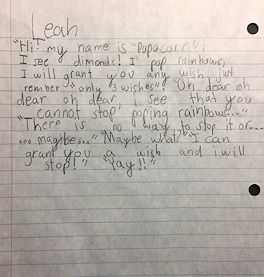 Leah
"Hi! my name is "Pupacorn"!
I see dimonds! I pop rainbows,
I will grant you any wish just
rember "only 3 wishes"! "Oh dear oh
dear oh dear i see that you
cannot stop poping rainbows..."
"There is no way to stop it or...
... maybe..." "Maybe what?" "I can
grant you a wish and i will
stop!" "Yay!!"